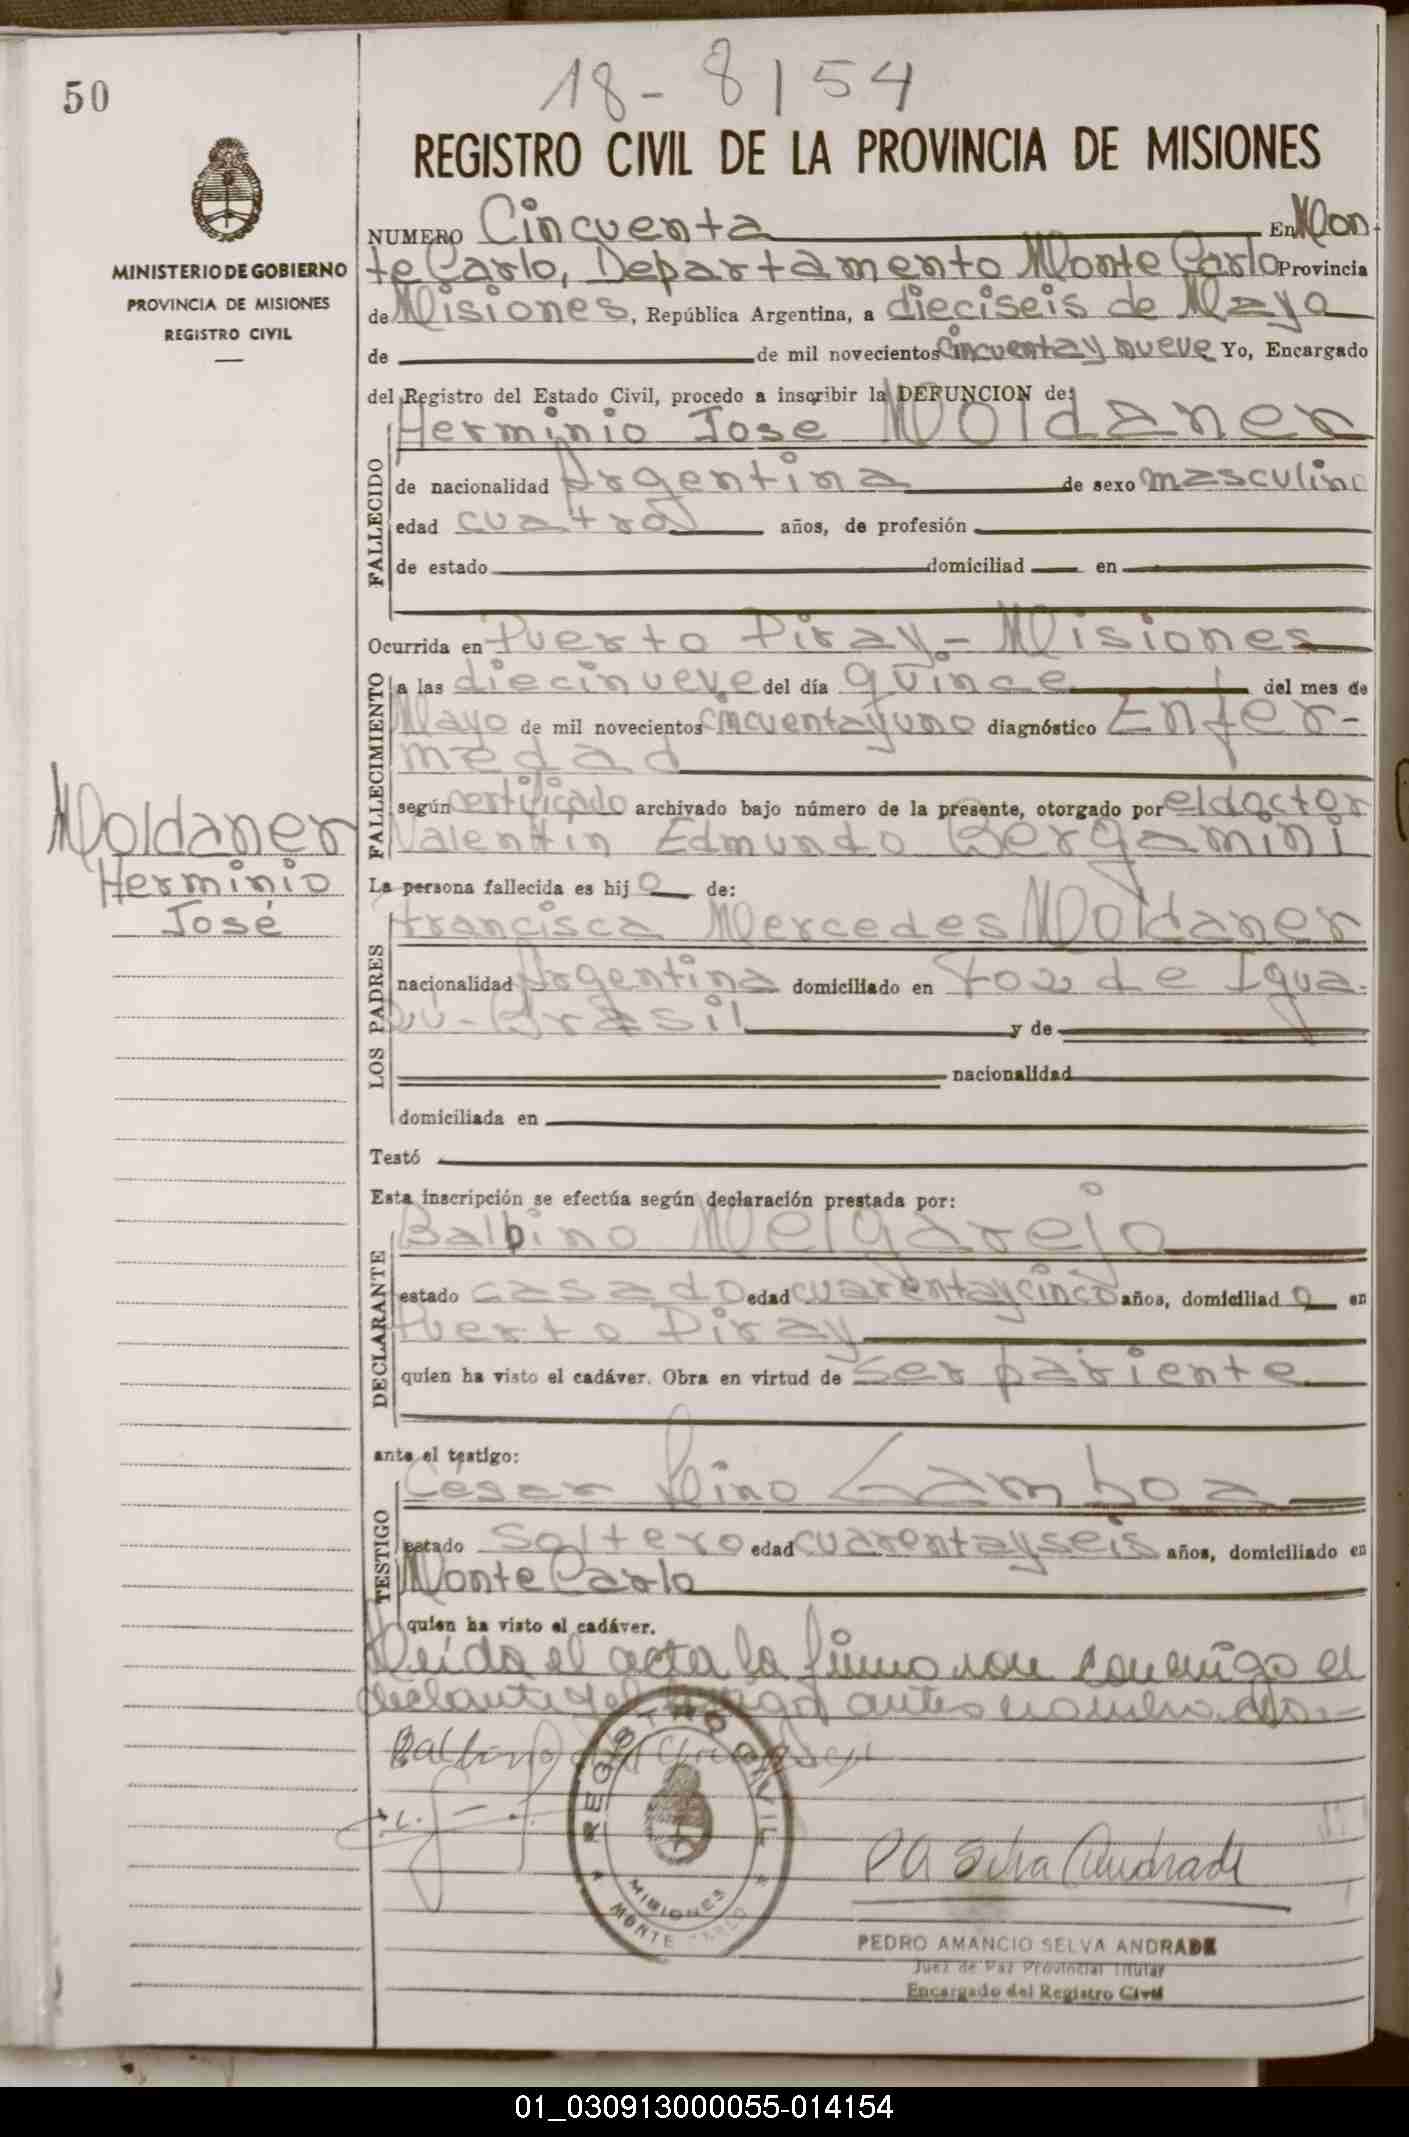 50
18-8/54
REGISTRO CIVIL DE LA PROVINCIA DE MISIONES
MINISTERIO DE GOBIERNO
PROVINCIA DE MISIONES
REGISTRO CIVIL
NUMERO Cincuenta En Mon-
te Carlo, Departamento Monte Carlo Provincia
de Misiones, República Argentina, a dieciseis de Mayo
de de mil novecientos cincuenta y nueve Yo, Encargado
del Registro del Estado Civil, procedo a inscribir la DEFUNCION de:
FALLECIDO
Herminio Jose Moldaner
de nacionalidad Argentina de sexo masculino
edad cuatro años, de profesión
de estado domiciliad en
Ocurrida en Puerto Piray - Misiones
FALLECIMIENTO
a las diecinueve del día quince del mes de
Mayo de mil novecientos cincuenta y uno diagnóstico Enfer-
medad
según certificado archivado bajo número de la presente, otorgado por el doctor
Valentin Edmundo Bergamini
Moldaner
Herminio
José
La persona fallecida es hijo de:
LOS PADRES
Francisca Mercedes Moldaner
nacionalidad Argentina domiciliado en Foz de Igua-
zú - Brasil y de
nacionalidad
domiciliada en
Testó
Esta inscripción se efectúa según declaración prestada por:
DECLARANTE
Balbino Melgarejo
estado casado edad cuarenta y cinco años, domiciliado en
Puerto Piray
quien ha visto el cadáver. Obra en virtud de ser pariente
ante el testigo:
TESTIGO
César Lino Gamboa
estado Soltero edad cuarenta y seis años, domiciliado en
Monte Carlo
quien ha visto el cadáver.
Leída el acta la firmaron conmigo el
declante y el testigo antes nombrados.-
Balbino
REGISTRO CIVIL
MISIONES
MONTE CARLO
PA Selva Andrade
PEDRO AMANCIO SELVA ANDRADE
Juez de Paz Provincial Titular
Encargado del Registro Civil
01_030913000055-014154